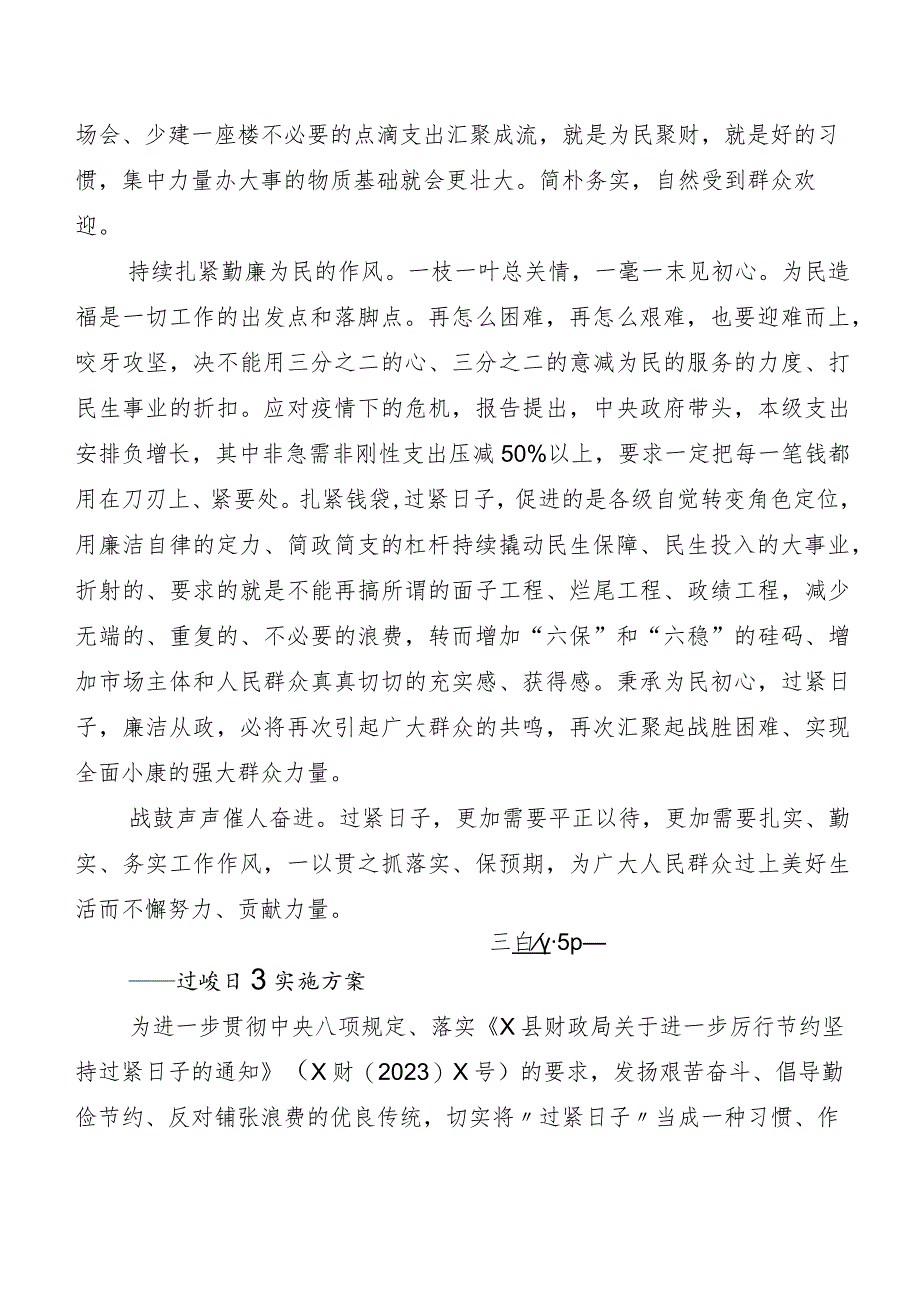 场会、少建一座楼不必要的点滴支出汇聚成流，就是为民聚财，就是好的习
惯，集中力量办大事的物质基础就会更壮大。简朴务实，自然受到群众欢
迎。
持续扎紧勤廉为民的作风。一枝一叶总关情，一毫一末见初心。为民造
福是一切工作的出发点和落脚点。再怎么困难，再怎么艰难，也要迎难而上，
咬牙攻坚，决不能用三分之二的心、三分之二的意减为民的服务的力度、打
民生事业的折扣。应对疫情下的危机，报告提出，中央政府带头，本级支出
安排负增长，其中非急需非刚性支出压减50%以上，要求一定把每一笔钱都
用在刀刃上、紧要处。扎紧钱袋,过紧日子，促进的是各级自觉转变角色定位，
用廉洁自律的定力、简政简支的杠杆持续撬动民生保障、民生投入的大事业，
折射的、要求的就是不能再搞所谓的面子工程、烂尾工程、政绩工程，减少
无端的、重复的、不必要的浪费，转而增加“六保”和“六稳”的硅码、增
加市场主体和人民群众真真切切的充实感、获得感。秉承为民初心，过紧日
子，廉洁从政，必将再次引起广大群众的共鸣，再次汇聚起战胜困难、实现
全面小康的强大群众力量。
战鼓声声催人奋进。过紧日子，更加需要平正以待，更加需要扎实、勤
实、务实工作作风，一以贯之抓落实、保预期，为广大人民群众过上美好生
活而不懈努力、贡献力量。
三白⁄γ·5p—
——过峻日3实施方案
为进一步贯彻中央八项规定、落实《X县财政局关于进一步厉行节约坚
持过紧日子的通知》（X财（2023）X号）的要求，发扬艰苦奋斗、倡导勤
俭节约、反对铺张浪费的优良传统，切实将〃过紧日子〃当成一种习惯、作